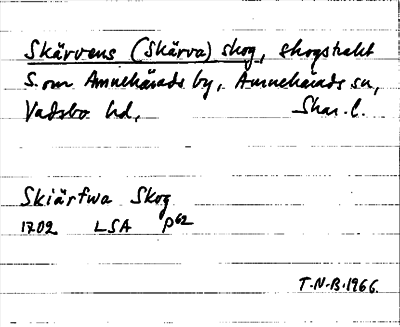 Skärvens (Skärva) skog, skogstrakt
S. om Amnehärads by, Amnehärads sn,
Vadsbo hd, Skar. l.
Skiärfwa Skog
1702 LSA P62
T.N-B.1966.